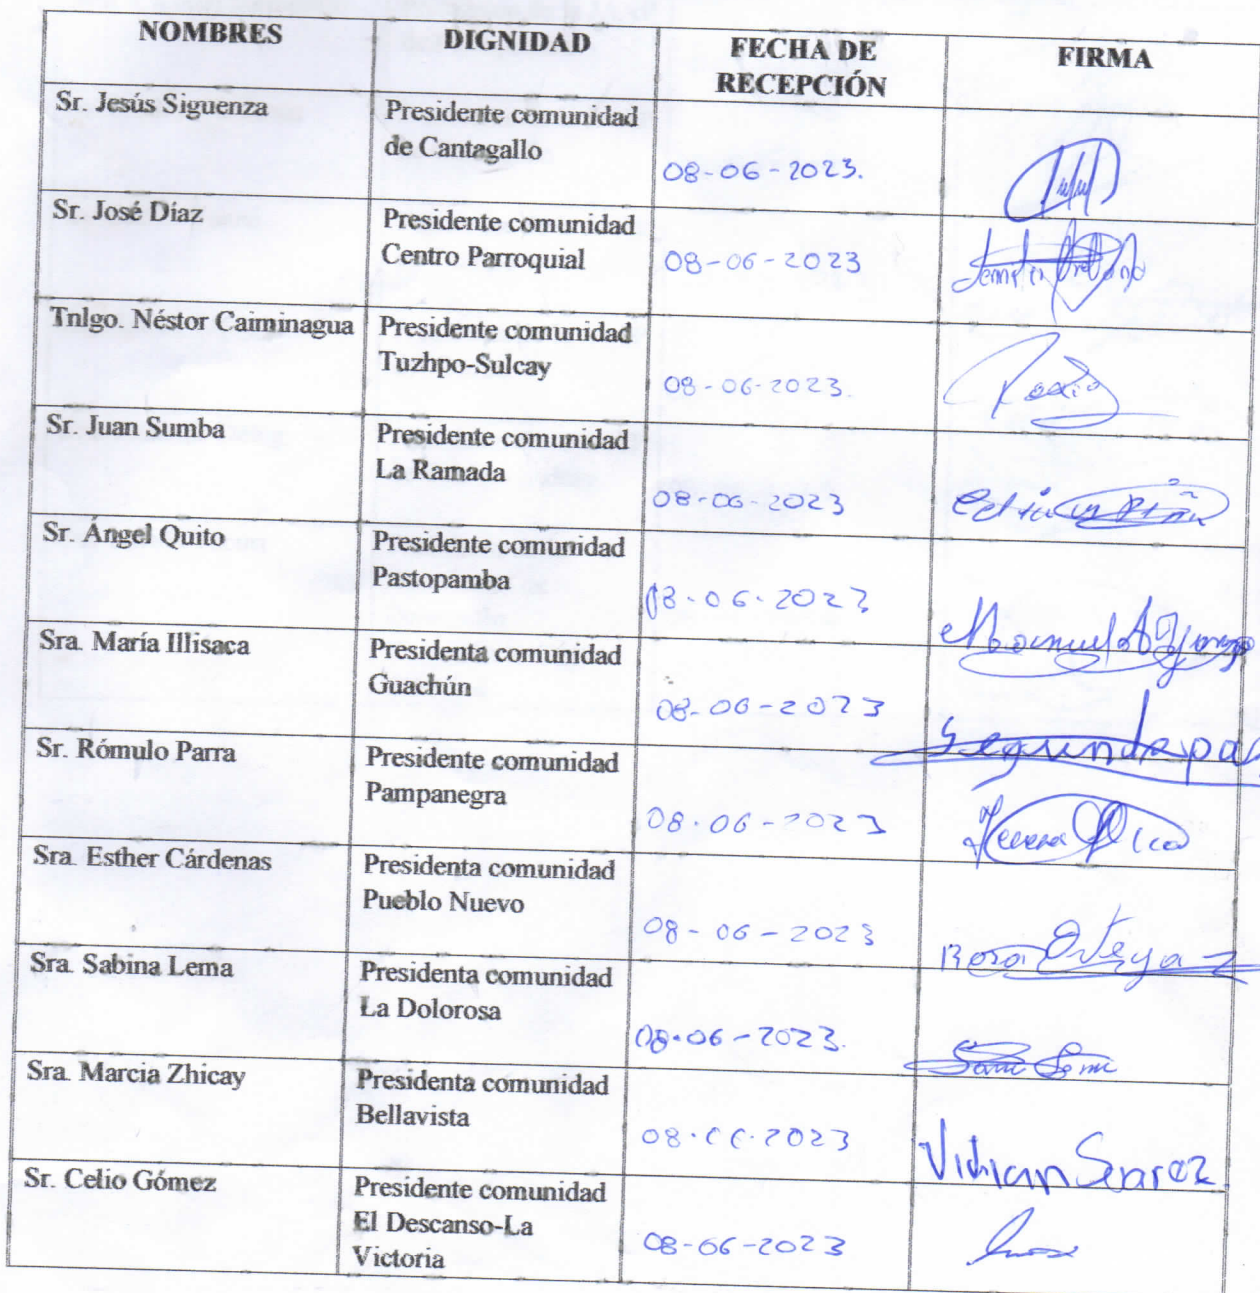 NOMBRES DIGNIDAD FECHA DE RECEPCIÓN FIRMA
Sr. Jesús Siguenza Presidente comunidad
de Cantagallo
08-06-2023.
Sr. José Díaz Presidente comunidad
Centro Parroquial
08-06-2023
Tnlgo. Néstor Caiminagua Presidente comunidad
Tuzhpo-Sulcay
08-06-2023.
Sr. Juan Sumba Presidente comunidad
La Ramada
08-06-2023
Sr. Ángel Quito Presidente comunidad
Pastopamba
08-06-2023
Manuel
Sra. María Illisaca Presidenta comunidad
Guachún
08-06-2023
Sr. Rómulo Parra Presidente comunidad
Pampanegra
08-06-2023
Sra. Esther Cárdenas Presidenta comunidad
Pueblo Nuevo
08-06-2023
Rosa Ortega
Sra. Sabina Lema Presidenta comunidad
La Dolorosa
08-06-2023.
Sra. Marcia Zhicay Presidenta comunidad
Bellavista
08-06-2023
Vivian Suarez
Sr. Celio Gómez Presidente comunidad
El Descanso-La
Victoria
08-06-2023